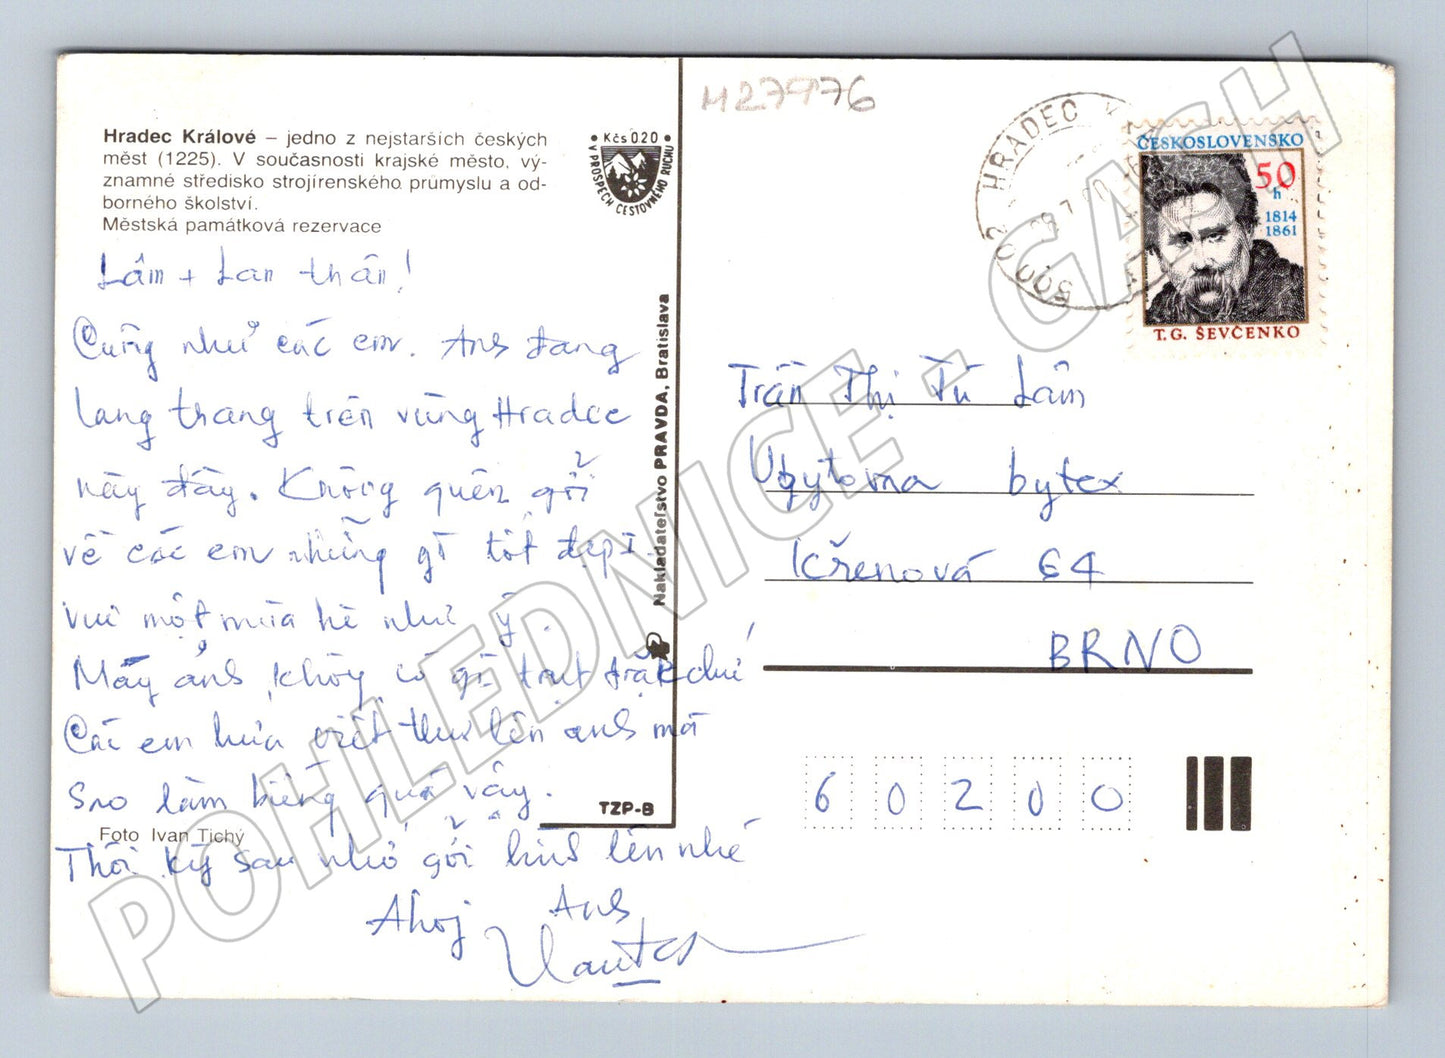 M27976
Hradec Králové – jedno z nejstarších českých
měst (1225). V současnosti krajské město, vý-
znamné středisko strojírenského průmyslu a od-
borného školství.
Městská památková rezervace
• Kčs 020 •
V PROSPECH CESTOVNÉHO RUCHU
500 02 HRADEC K
ČESKOSLOVENSKO
50
h
1814
1861
T. G. ŠEVČENKO
Lâm + Lan thân!
Cũng như các em. Anh đang
lang thang trên vùng Hradec
này đây. Không quên gởi
về các em những gì tốt đẹp
vui một mùa hè như ý.
Mấy anh không có gì trục trặc chứ
Các em hứa viết thư lên anh mà
sao làm biếng quá vậy.
Thôi kỳ sau nhớ gởi hình lên nhé
Ahoj Anh
Nakladateľstvo PRAVDA, Bratislava
TZP-B
Foto Ivan Tichý
Trần Thị Tú Lâm
Ubytovna bytex
Křenová 64
BRNO
6 0 2 0 0
POHLEDNICE - GASH